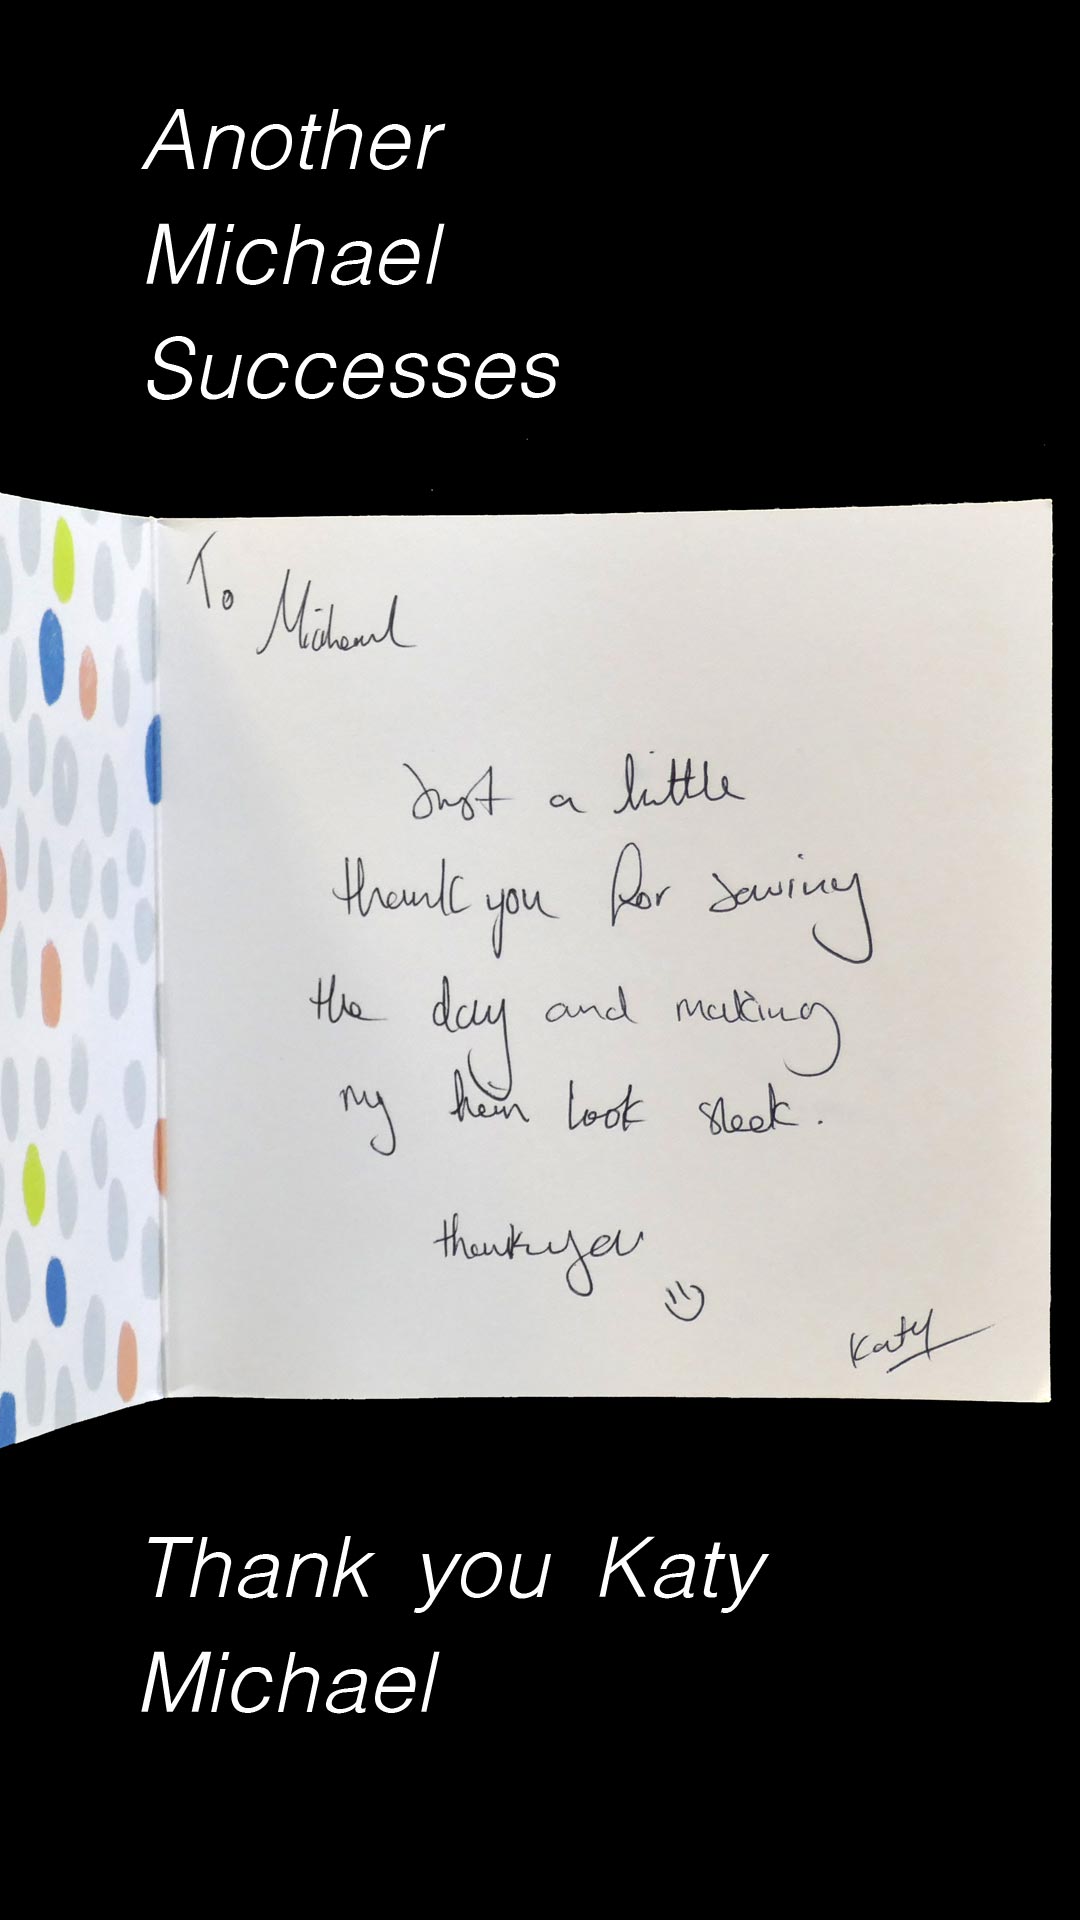 Another
Michael
Successes
To
Michael
Just a little
thank you for saving
the day and making
my hair look sleek.
thank you
Katy
Thank you Katy
Michael